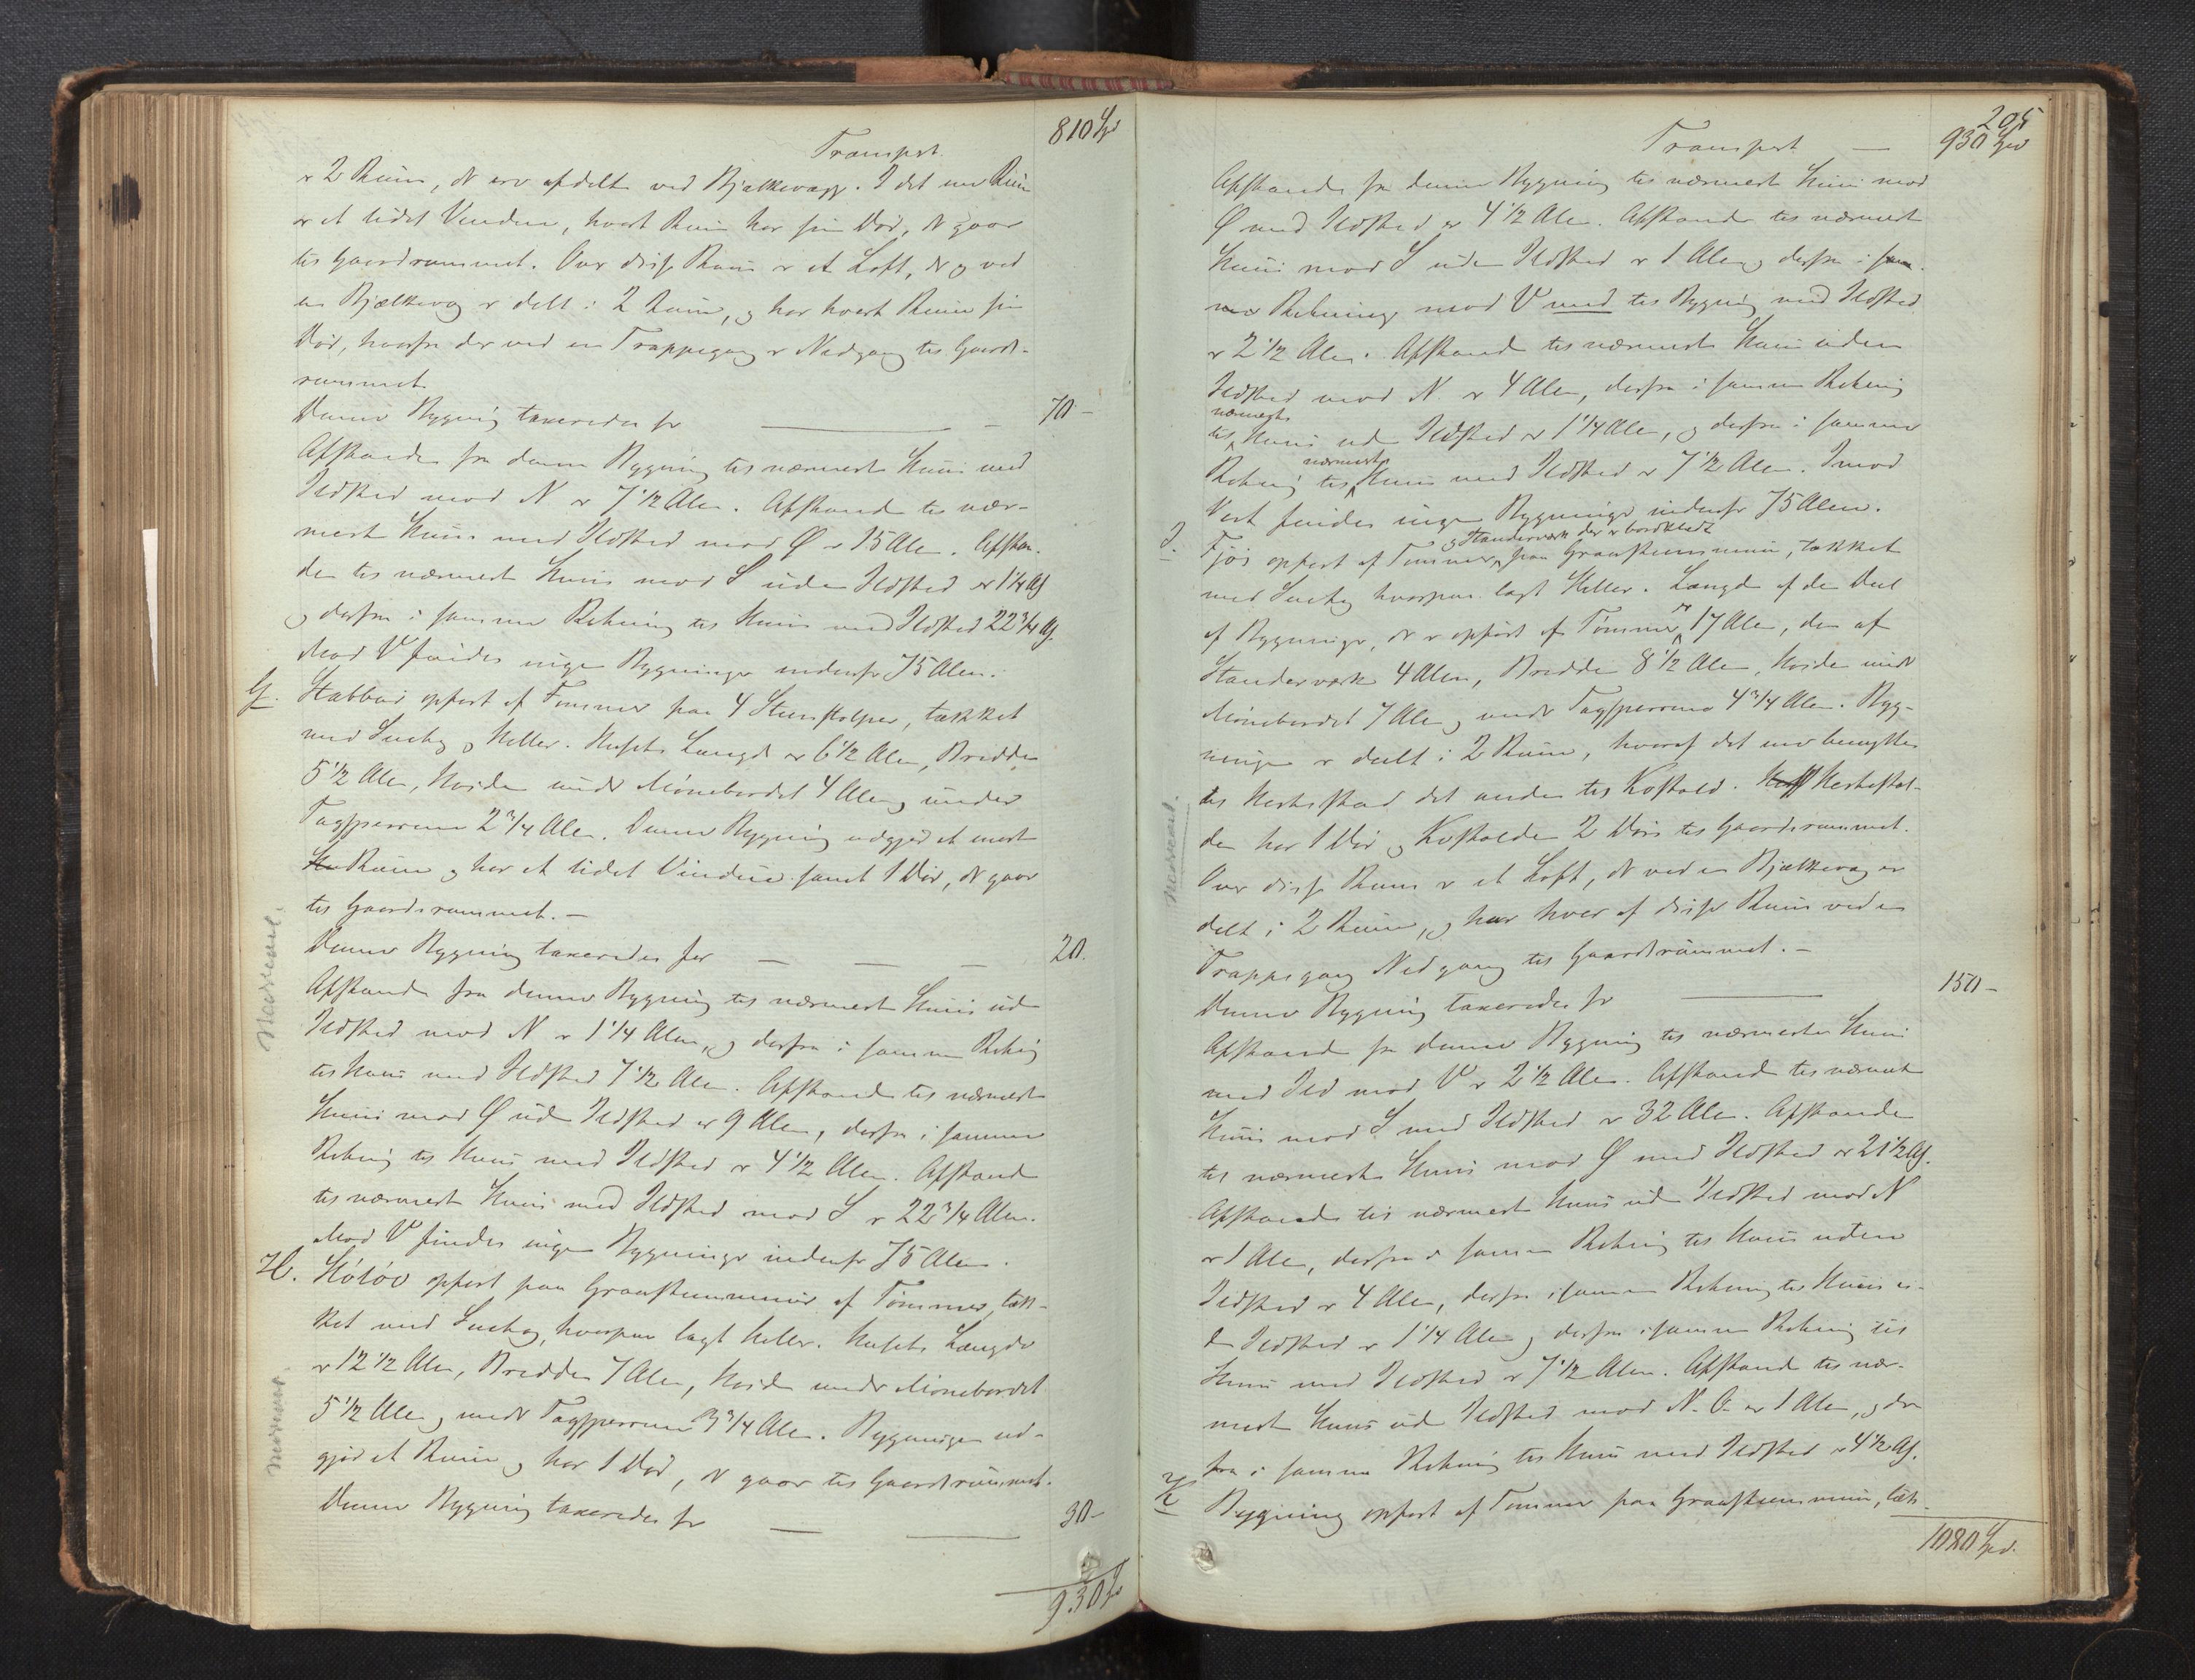 Transport 810 Spd
er 2 Rum, der ere afdelte ved Bjælkevæg. I det ene Rum
er et lidet Vindue, hvert Rum har sin Dør, der gaar
til Gaardsrummet. Over disse Rum er et Loft, der og ved
en Bjælkevæg er delt i 2 Rum, og har hvert Rum sin
Dør, hvorfra der ved en Trappegang er Nedgang til Gaards-
rummet
Denne Bygning taxeredes for — 70 -
Afstanden fra denne Bygning til nærmeste Huus med
Ildsted mod N er 7 1/2 Alen. Afstanden til nær-
meste Huus med Ildsted mod Ø er 15 Alen. Afstan-
den til nærmeste Huus mod S uden Ildsted er 1 1/4 Al
og derfra i samme Retning til Huus med Ildsted 22 3/4 Al.
Mod V findes ingen Bygninger indenfor 75 Alen.
G. Stabbur opført af Tømmer paa 4 Steenstolper, tækket
med Suetag og Heller. Husets Længde er 6 1/2 Alen, Bredden
5 1/2 Alen, Høiden under Mønebordet 4 Alen og under
Tagsperrene 2 3/4 Alen. Denne Bygning udgjør et enest
Rum og har et lidet Vindue samt 1 Dør, der gaar
til Gaardsrummet. -
Denne Bygning taxeredes for — — — 20.
Afstanden fra denne Bygning til nærmeste Huus uden
Ildsted mod N er 1 1/4 Alen, og derfra i samme Retning
til Huus med Ildsted 7 1/2 Alen. Afstanden til nærmeste
Huus mod Ø uden Ildsted er 9 Alen, derfra i samme
Retning til Huus med Ildsted er 4 1/2 Alen. Afstanden
til nærmeste Huus med Ildsted mod S er 22 3/4 Alen.
Mod V findes ingen Bygninger indenfor 75 Alen.
H. Høløe opført paa Graasteensmuur af Tømmer, tæk-
ket med Suetag, hvorpaa lagt Heller. Husets Længde
er 12 1/2 Alen, Bredden 7 Alen, Høiden under Mønebordet
5 1/2 Alen og under Tagsperrene 3 3/4 Alen. Bygningen ud-
gjør et Rum og har 1 Dør, der gaar til Gaardsrummet.
Denne Bygning taxeredes for — — 30 -
930 Spd
205
Transport — 930 Spd
Afstanden fra denne Bygning til nærmeste Huus mod
Ø med Ildsted er 4 1/2 Alen. Afstanden til nærmeste
Huus mod S uden Ildsted er 1 Alen og derfra i sam-
me Retning mod V med til Bygning med Ildsted
er 2 1/2 Alen. Afstanden til nærmeste Huus uden
Ildsted mod N. er 4 Alen, derfra i samme Retning
til nærmeste Huus uden Ildsted er 1 1/4 Alen, og derfra i samme
Retning til nærmeste Huus med Ildsted er 7 1/2 Alen. Imod
Vest findes ingen Bygninger indenfor 75 Alen.
I. Fjøs opført af Tømmer og Standerværk der er bordklædt paa Graasteensmuur, tækket
med Suetag hvorpaa lagt Heller. Længde af den Deel
af Bygningen, der er opført af Tømmer er 17 Alen, den af
Standerværk 4 Alen, Bredden 8 1/2 Alen, Høiden under
Mønebordet 7 Alen og under Tagsperrene 4 3/4 Alen. Byg-
ningen er deelt i 2 Rum, hvoraf det ene benyttes
til Hestestald det andet til Kostald. Hestestal-
den har 1 Dør og Kostalden 2 Døre til Gaardsrummet.
Over disse Rum er et Loft, der ved en Bjælkevæg er
delt i 2 Rum, og har hver af disse Rum ved en
Trappegang Nedgang til Gaardsrummet. -
Denne Bygning taxeredes for — 150 -
Afstanden fra denne Bygning til nærmeste Huus
med Ild mod V er 2 1/2 Alen. Afstanden til nærmeste
Huus mod S med Ildsted er 32 Alen. Afstanden
til nærmeste Huus mod Ø med Ildsted er 21 1/2 Al.
Afstanden til nærmeste Huus uden Ildsted mod N
er 1 Alen, derfra i samme Retning til Huus uden
Ildsted er 4 Alen, derfra i samme Retning til Huus u-
den Ildsted er 1 1/4 Alen og derfra i samme Retning til
Huus med Ildsted er 7 1/2 Alen. Afstanden til nær-
meste Huus uden Ildsted mod N. O. er 1 Alen, og der-
fra i samme Retning til Huus med Ildsted er 4 1/2 Al.
K Bygning opført af Tømmer paa Graasteensmuur, tæk-
1080 Spd.